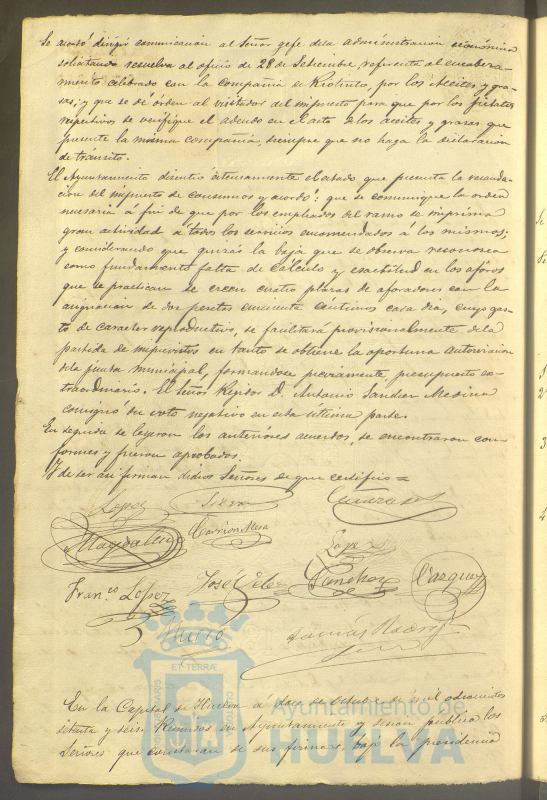 Se acordó dirigir comunicacion al Señor gefe dela administracion económica
solicitando resuelva al oficio de 28 de Setiembre, referente al encabeza-
miento celebrado con la Compañia de Riotinto, por los Aceites y gra-
sas; y que se dé órden al visitador del impuesto para que por los fielatos
respectivos se verifique el adeudo en el acto de los aceites y grasas que
presente la misma compañia, siempre que no haga la declaracion
de tránsito.
El Ayuntamiento discutió atentamente el estado que presenta la recauda-
cion del impuesto de consumos y acordó: que se comunique la orden
necesaria á fin de que por los empleados del ramo se imprima
gran actividad á todos los servicios encomendados á los mismos;
y considerando que quizás la baja que se observa reconozca
como fundamento falta de cálculo y exactitud en los aforos
que se practican se creen cuatro plazas de aforadores con la
asignacion de dos pesetas cincuenta céntimos cada dia, cuyo gas-
to de caracter reproductivo, se facilitará provisionalmente dela
partida de imprevistos en tanto se obtiene la oportuna autorizacion
dela junta municipal, formandose préviamente presupuesto es-
traordinario. El Señor Regidor D. Antonio Sanchez Medina
consignó su voto negativo en esta última parte.
En seguida se leyeron los anteriores acuerdos, se encontraron con-
formes y fueron aprobados.
Y de ser asi firman dichos Señores de que certifico =
Lopez
Carrion Mesa
Fran.co López
José
Sanchez
Vazquez
En la Capital de Huelva á de Octubre de mil ochocientos
setenta y seis: Reunidos en Ayuntamiento y sesion pública los
Señores que constarán de sus firmas, bajo la presidencia
ET TERRÆ
Ayuntamiento de
HUELVA